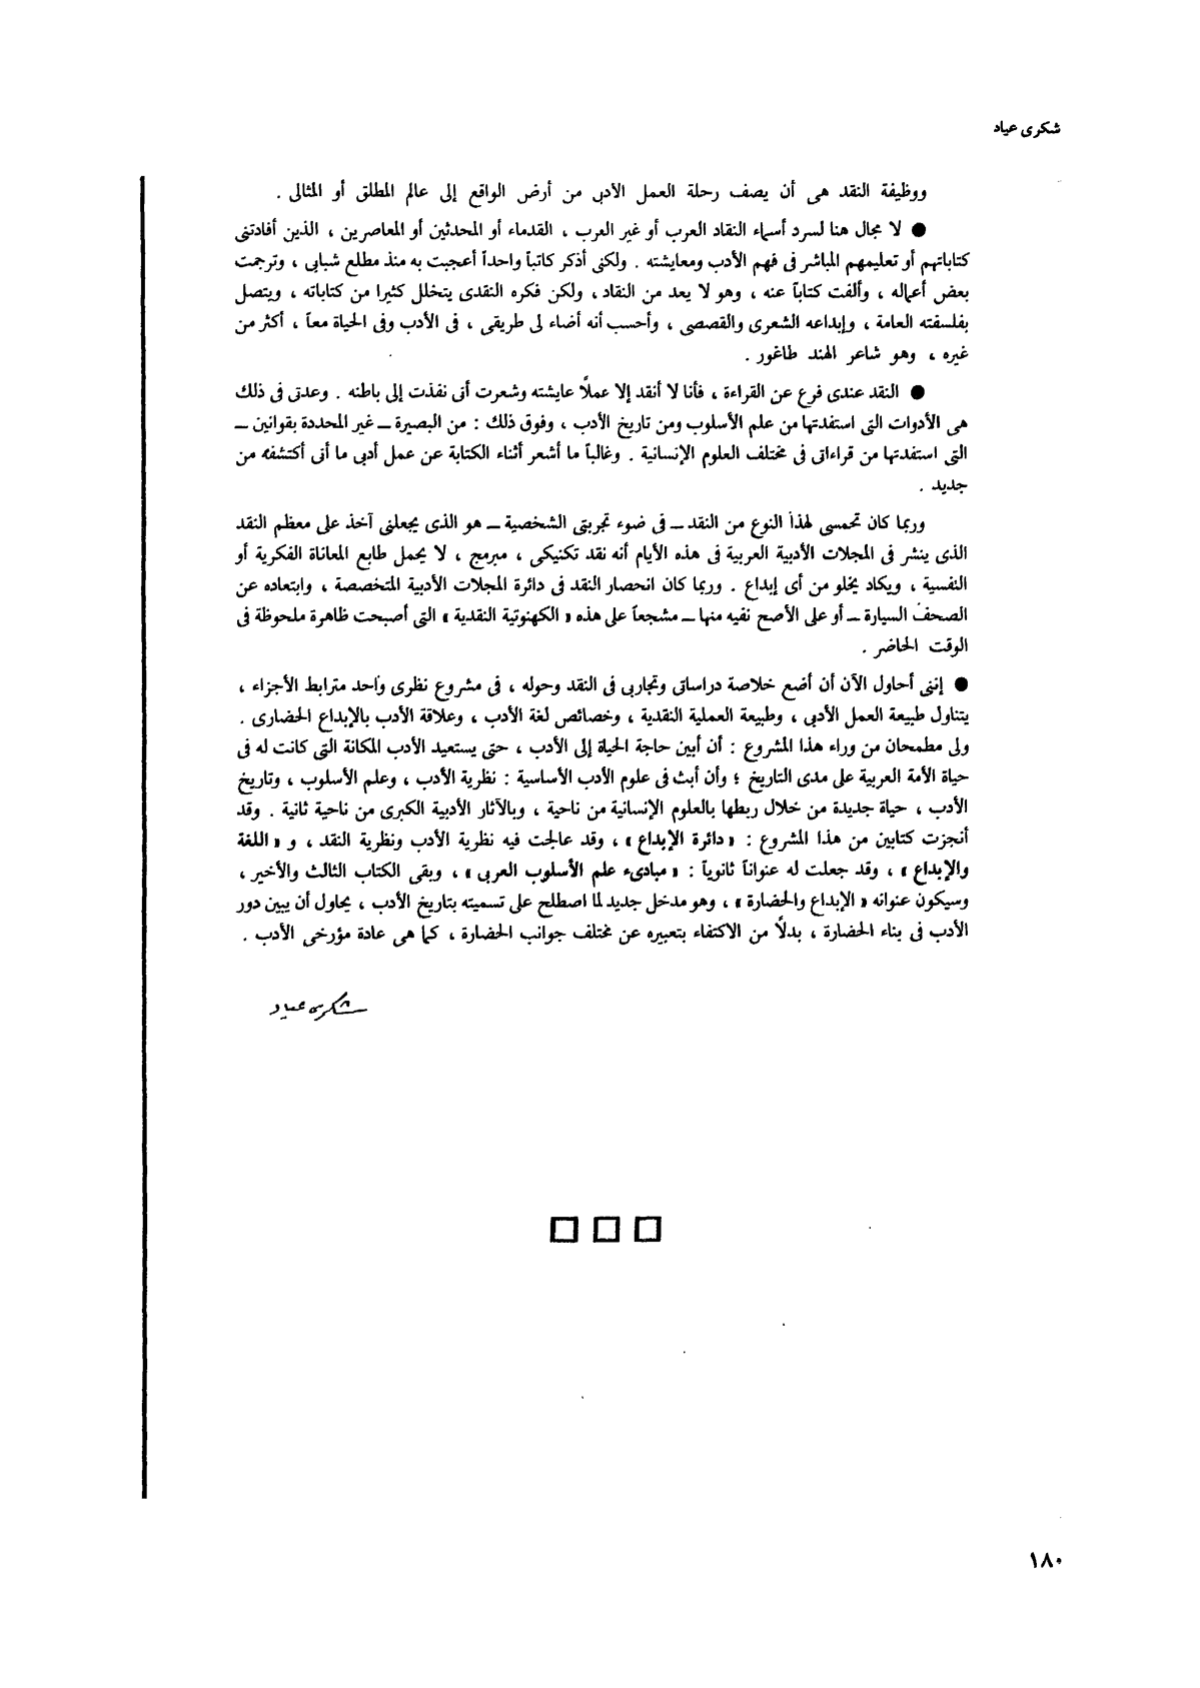 شكرى عياد
ووظيفة النقد هى أن يصف رحلة العمل الأدبى من أرض الواقع إلى عالم المطلق أو المثالى .
● لا مجال هنا لسرد أسماء النقاد العرب أو غير العرب ، القدماء أو المحدثين أو المعاصرين ، الذين أفادتنى
كتاباتهم أو تعليمهم المباشر فى فهم الأدب ومعايشته . ولكنى أذكر كاتباً واحداً أعجبت به منذ مطلع شبابى ، وترجمت
بعض أعماله ، وألفت كتاباً عنه ، وهو لا يعد من النقاد ، ولكن فكره النقدى يتخلل كثيرا من كتاباته ، ويتصل
بفلسفته العامة ، وإبداعه الشعرى والقصصى ، وأحسب أنه أضاء لى طريقى ، فى الأدب وفى الحياة معاً ، أكثر من
غيره ، وهو شاعر الهند طاغور .
● النقد عندى فرع عن القراءة ، فأنا لا أنقد إلا عملاً عايشته وشعرت أنى نفذت إلى باطنه . وعدتى فى ذلك
هى الأدوات التى استفدتها من علم الأسلوب ومن تاريخ الأدب ، وفوق ذلك : من البصيرة ــ غير المحددة بقوانين ــ
التى استفدتها من قراءاتى فى مختلف العلوم الإنسانية . وغالباً ما أشعر أثناء الكتابة عن عمل أدبى ما أنى أكتشفه من
جديد .
وربما كان تحمسى لهذا النوع من النقد ــ فى ضوء تجربتى الشخصية ــ هو الذى يجعلنى آخذ على معظم النقد
الذى ينشر فى المجلات الأدبية العربية فى هذه الأيام أنه نقد تكنيكى ، مبرمج ، لا يحمل طابع المعاناة الفكرية أو
النفسية ، ويكاد يخلو من أى إبداع . وربما كان انحصار النقد فى دائرة المجلات الأدبية المتخصصة ، وابتعاده عن
الصحف السيارة ــ أو على الأصح نفيه منها ــ مشجعاً على هذه « الكهنوتية النقدية » التى أصبحت ظاهرة ملحوظة فى
الوقت الحاضر .
● إننى أحاول الآن أن أضع خلاصة دراساتى وتجاربى فى النقد وحوله ، فى مشروع نظرى واحد مترابط الأجزاء ،
يتناول طبيعة العمل الأدبى ، وطبيعة العملية النقدية ، وخصائص لغة الأدب ، وعلاقة الأدب بالإبداع الحضارى .
ولى مطمحان من وراء هذا المشروع : أن أبين حاجة الحياة إلى الأدب ، حتى يستعيد الأدب المكانة التى كانت له فى
حياة الأمة العربية على مدى التاريخ ؛ وأن أبث فى علوم الأدب الأساسية : نظرية الأدب ، وعلم الأسلوب ، وتاريخ
الأدب ، حياة جديدة من خلال ربطها بالعلوم الإنسانية من ناحية ، وبالآثار الأدبية الكبرى من ناحية ثانية . وقد
أنجزت كتابين من هذا المشروع : « دائرة الإبداع » ، وقد عالجت فيه نظرية الأدب ونظرية النقد ، و « اللغة
والإبداع » ، وقد جعلت له عنواناً ثانوياً : « مبادىء علم الأسلوب العربى » ، وبقى الكتاب الثالث والأخير ،
وسيكون عنوانه « الإبداع والحضارة » ، وهو مدخل جديد لما اصطلح على تسميته بتاريخ الأدب ، يحاول أن يبين دور
الأدب فى بناء الحضارة ، بدلاً من الاكتفاء بتعبيره عن مختلف جوانب الحضارة ، كما هى عادة مؤرخى الأدب .
شكرى عياد
١٨٠